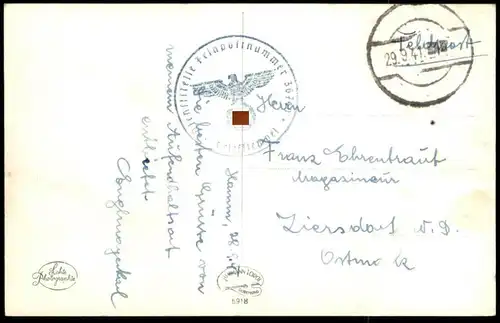 Feldpost
29.9.41
Dienststelle Feldpostnummer
Herrn
Franz Ehrentraut
Magazineur
Ziersdorf N. D.
Ostmark
Hamm, 28.
Die besten Grüße von
meinem Aufenthaltsort
entbietet
Echte
Photographie
5918